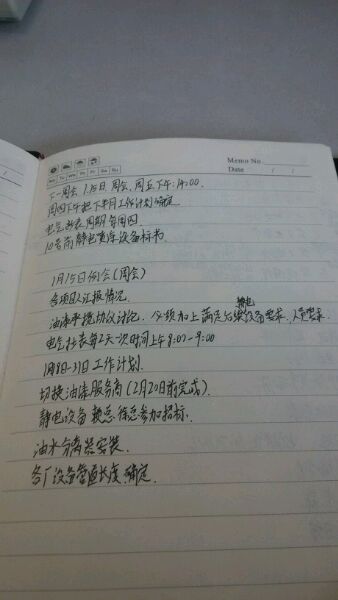 Memo No.
Date / /
Mo Tu We Th Fr Sa Su
下一周会 1.15日 周会、周五下午:14:00.
周四下午把下半月工作计划确定
电气抄表周期 每周四
10号前静电喷涂设备标书
1月15日例会(周会)
各项目汇报情况.
油漆 协议讨论, 必须加上满足 设备要求,人员要求.
静电
电气抄表每2天一次时间上午8:00-9:00
1月18日-31日工作计划.
切换油漆服务商(2月20日前完成).
静电设备 总 徐总参加招标.
油水分离器安装.
各厂设备管道长度确定.